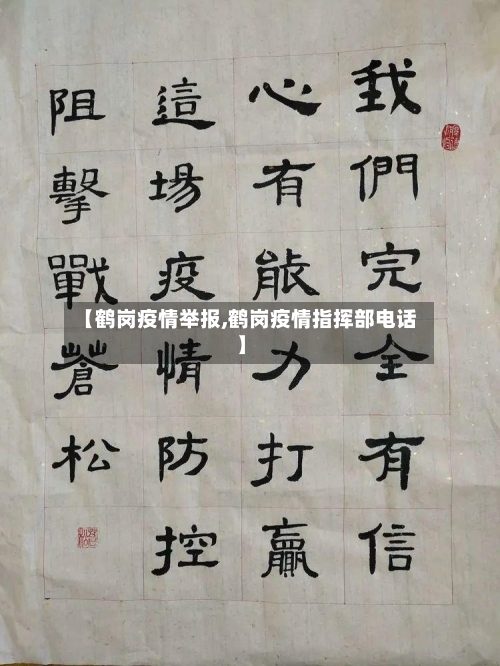 我們完全有信
心有能力打贏
這場疫情防控
阻擊戰蒼松
【鹤岗疫情举报,鹤岗疫情指挥部电话
】